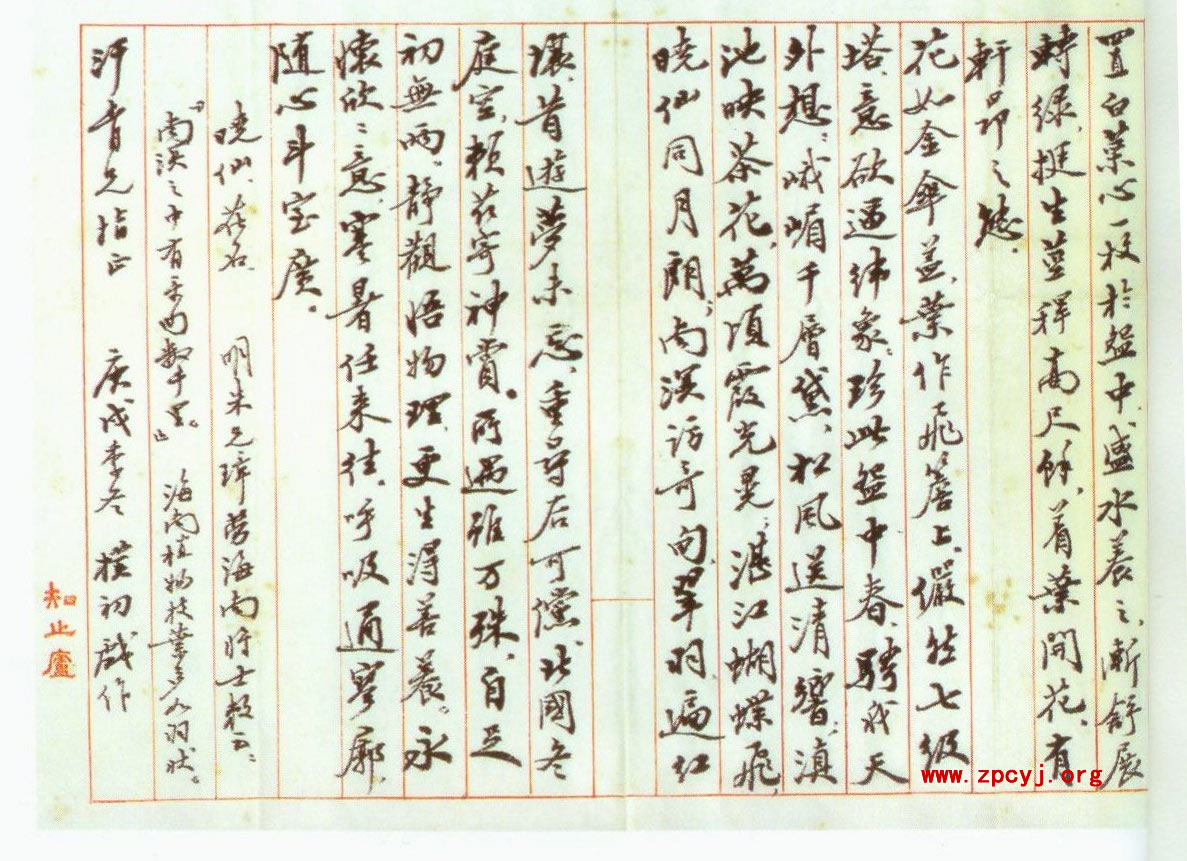 置白菜心一枚於盌中,盛水養之,漸舒展
轉綠,挺生莖稈高尺餘,着葉開花,有
軒昂之態。
花如金傘蓋,葉作飛簷上,儼然七級
塔,意欲逼緯象。珍此盌中春,騁我天
外想:峨嵋千層黛,松風送清響;滇
池映茶花,萬頃霞光晃;湛江蝴蝶飛,
曉仙同月朗;南溟訪奇甸,翠羽遍紅
壤。昔遊夢未忘,重尋后可儻。北國冬
庭空,賴茲寄神賞。所遇雖万殊,自足
初無兩。靜觀悟物理,更生得善養。永
懷欣欣意,寒暑任來往,呼吸通寥廓,
隨心斗室廣。
曉仙,花名。 明朱元璋勞海南將士敕云:
『南溟之中有奇甸數千里。』 海南植物枝葉多作羽狀。
汗青兄指正 庚戌季冬 樸初戲作
知止廬
www.zpcyj.org